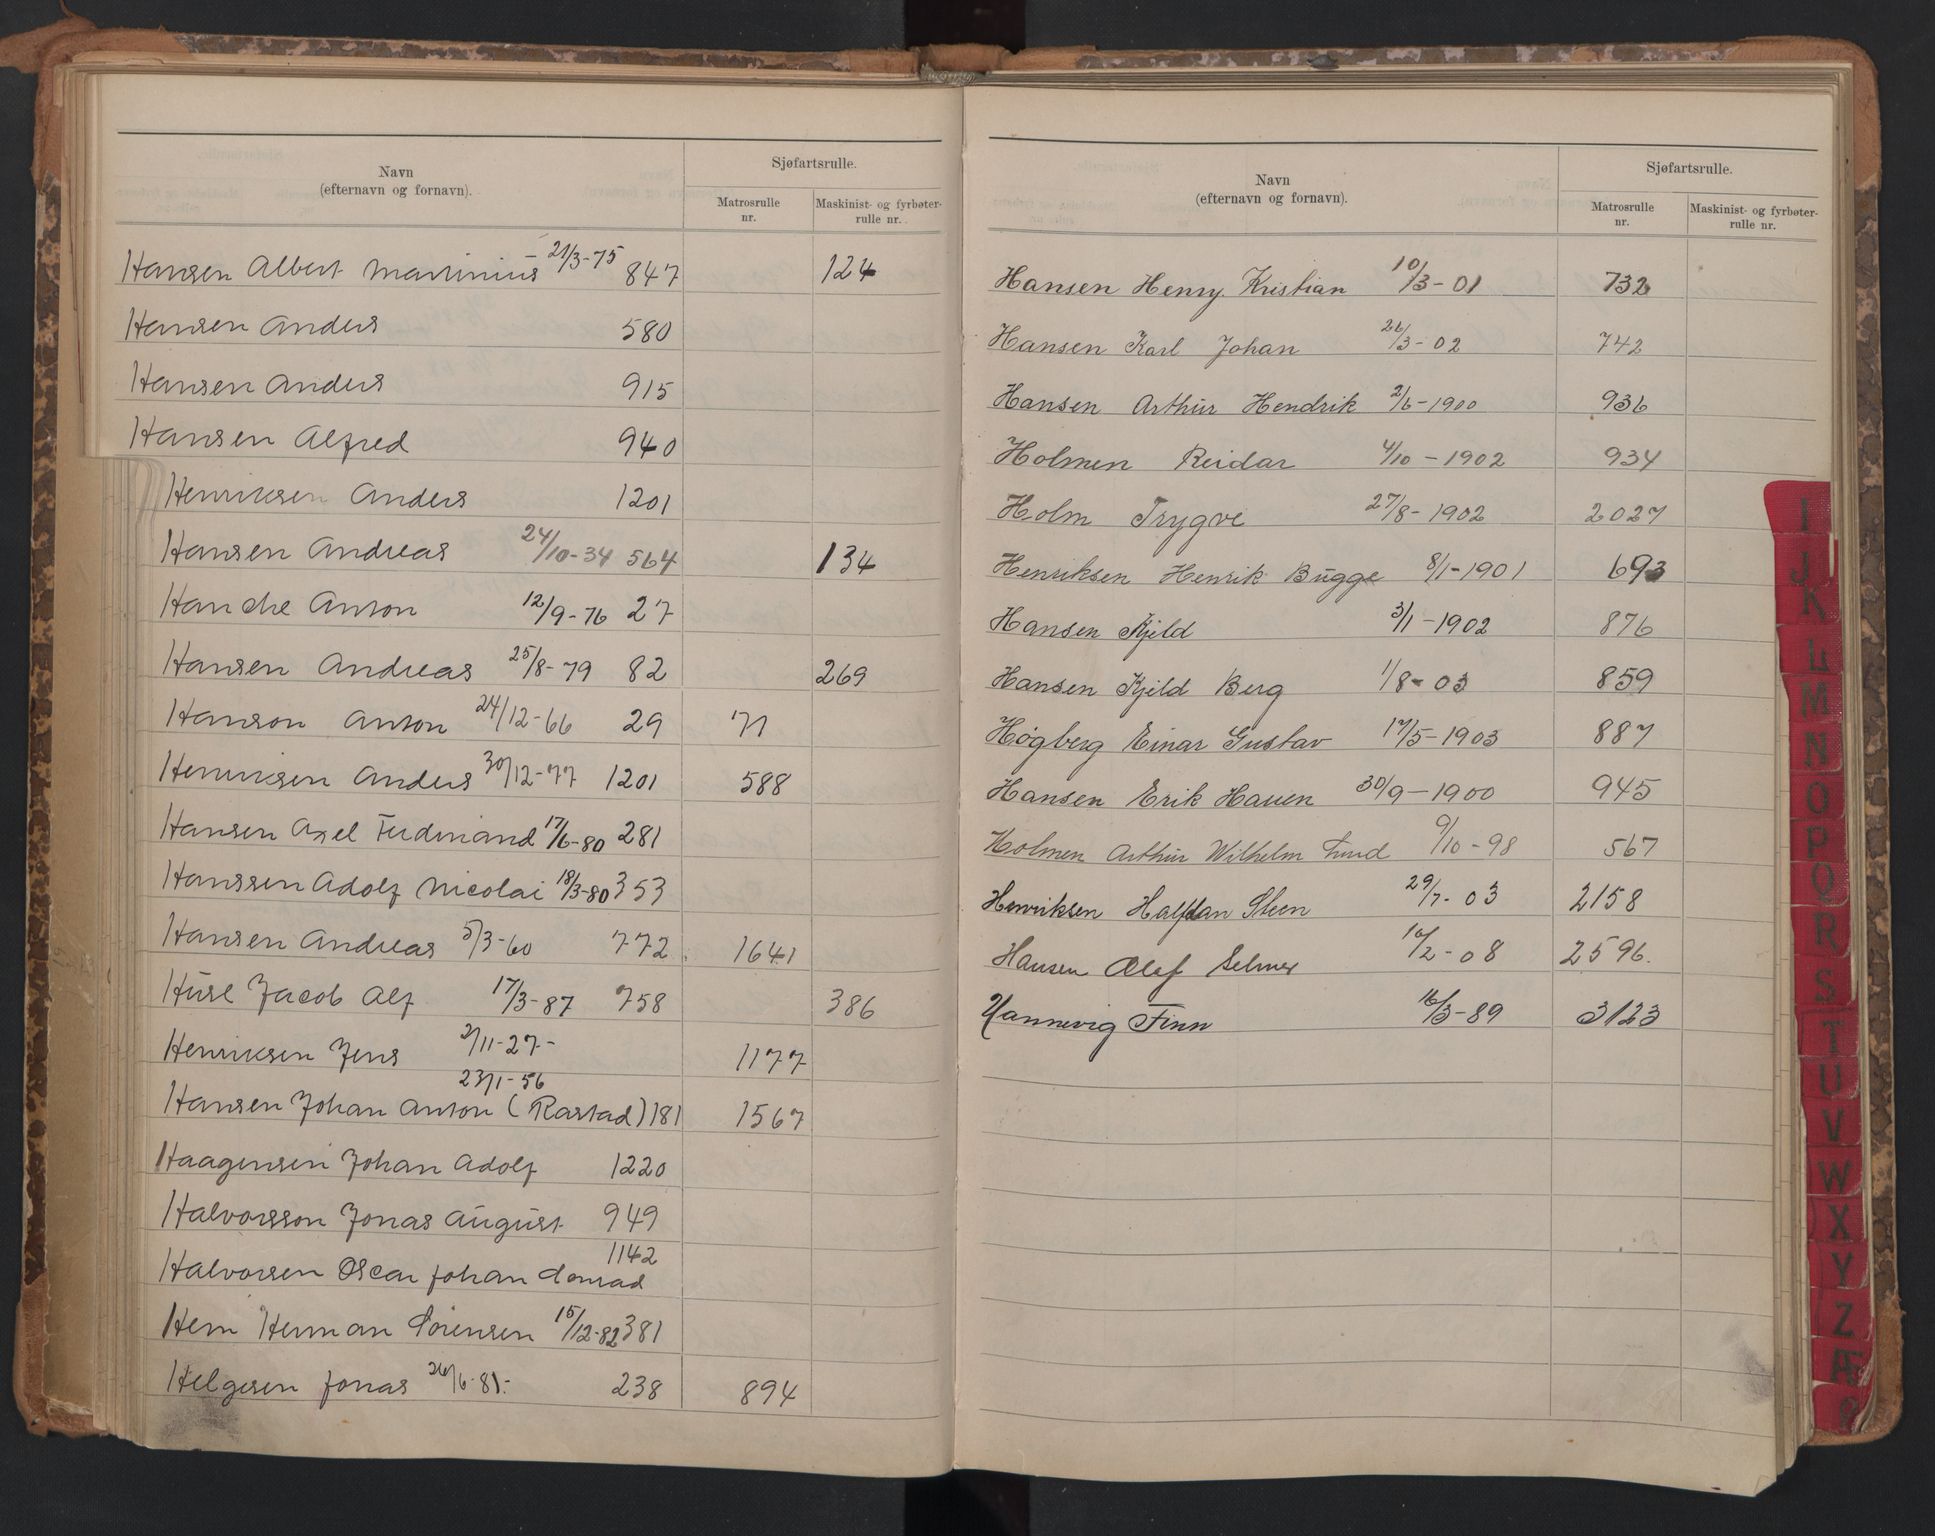 Navn
(efternavn og fornavn).
Sjøfartsrulle.
Matrosrulle nr.
Maskinist- og fyrbøter-rulle nr.
Hansen Albert Martinius 21/3-75 847 124
Hansen Anders 580
Hansen Anders 915
Hansen Alfred 940
Henriksen Anders 1201
Hansen Andreas 24/10-34 564 134
Hanche Anton 12/9-76 27
Hansen Andreas 25/8-79 82 269
Hanson Anton 24/12-66 29 71
Henriksen Anders 30/12-77 1201 588
Hansen Axel Ferdinand 17/6-80 281
Hanssen Adolf Nicolai 18/3-80 353
Hansen Andreas 5/3-60 772 1641
Jacob Alf 17/3-87 758 386
Henriksen Jens 2/11-27- 1177
23/1-56
Hansen Johan Anton (Rastad) 181 1567
Haagensen Johan Adolf 1220
Halvorsson Jonas August 949
1142
Halvorsen Oscar Johan Conrad
Hem Herman Sørensen 15/12-82 381
Helgesen Jonas 26/6-81.- 238 894
Navn
(efternavn og fornavn).
Sjøfartsrulle.
Matrosrulle nr.
Maskinist- og fyrbøter-rulle nr.
Hansen Henry. Kristian 10/3-01 732
Hansen Karl Johan 26/3-02 742
Hansen Arthur Hendrik 2/6-1900 936
Holmen Reidar 4/10-1902 934
Holm Trygve 27/8-1902 2027
Henriksen Henrik Bugge 8/1-1901 693
Hansen Kjeld 3/1-1902 876
Hansen Kjeld Berg 1/8-03 859
Høgberg Einar Gustav 17/5-1903 887
Hansen Erik Hauen 30/9-1900 945
Holmen Arthur Wilhelm Lund 9/10-98 567
Henriksen Halfdan Steen 29/7-03 2158
Hansen Olaf Selmer 16/2-08 2596.
Hannevig Finn 16/3-89 3123
I
J
K
L
M
N
O
P
Q
R
S
T
U
V
W
X
Y
Z
Æ
Ø